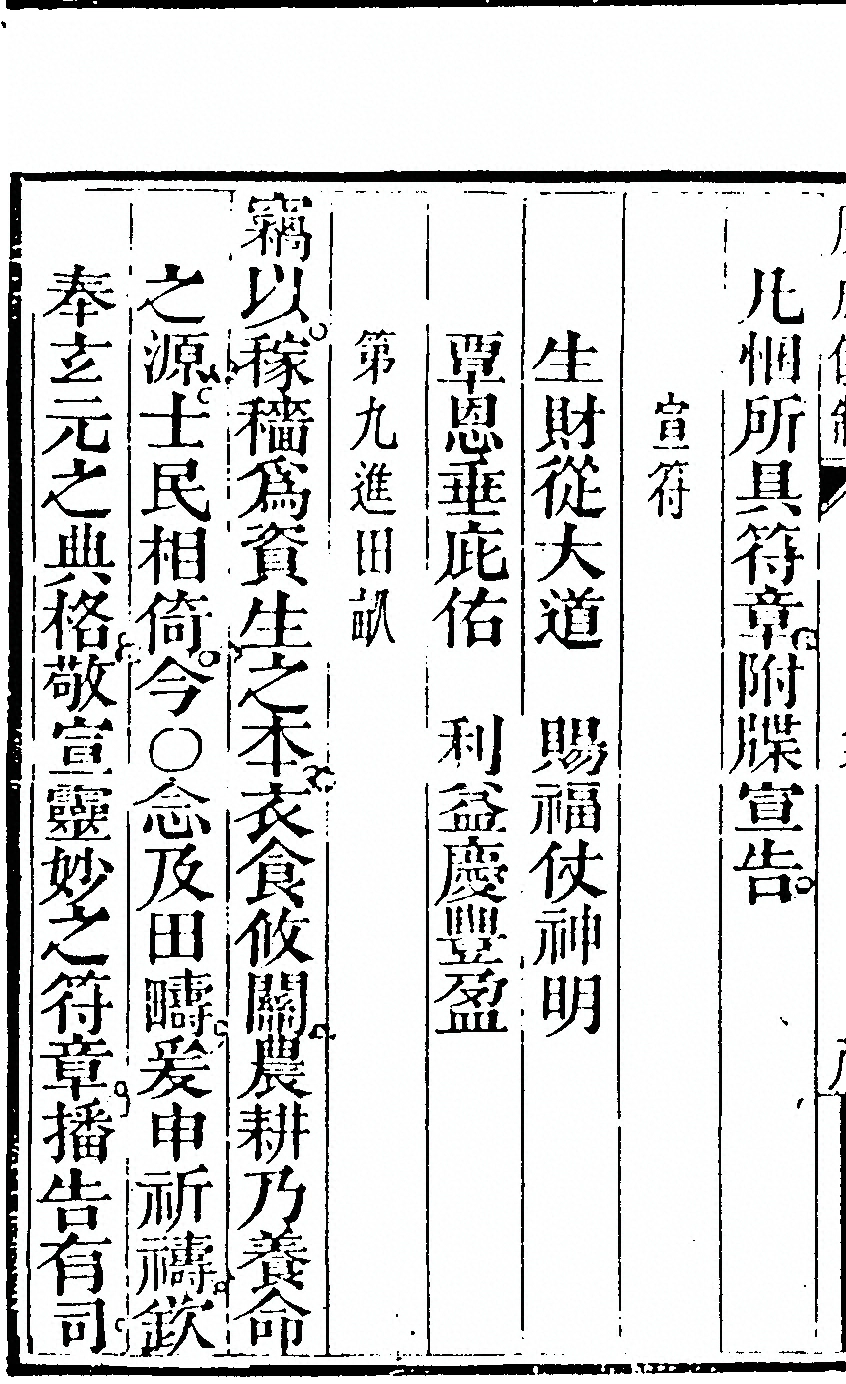 凡悃所具符章附牒宣告
宣符
生財從大道　賜福仗神明
覃恩垂庇佑　利益慶豐盈
第九進田畝
竊以稼穡爲資生之本衣食攸關農耕乃養命
之源士民相倚今〇念及田疇爰申祈禱欽
奉玄元之典格敬宣靈妙之符章播告有司